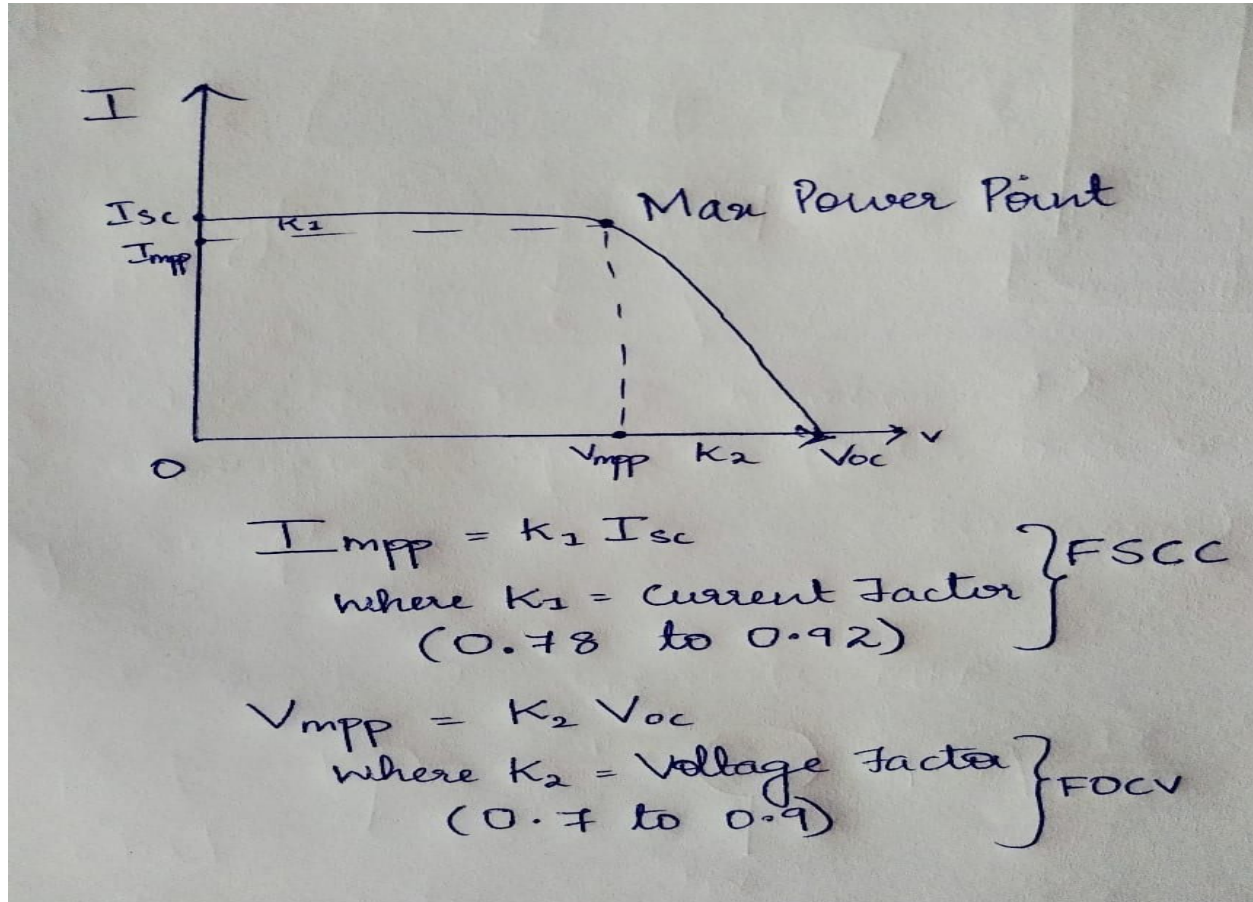 I
Isc
K1
Max Power Point
Impp
O
Vmpp K2 Voc
V
Impp = K1 Isc
where K1 = Current Factor
(0.78 to 0.92)
} FSCC
Vmpp = K2 Voc
where K2 = Voltage Factor
(0.7 to 0.9)
} FOCV